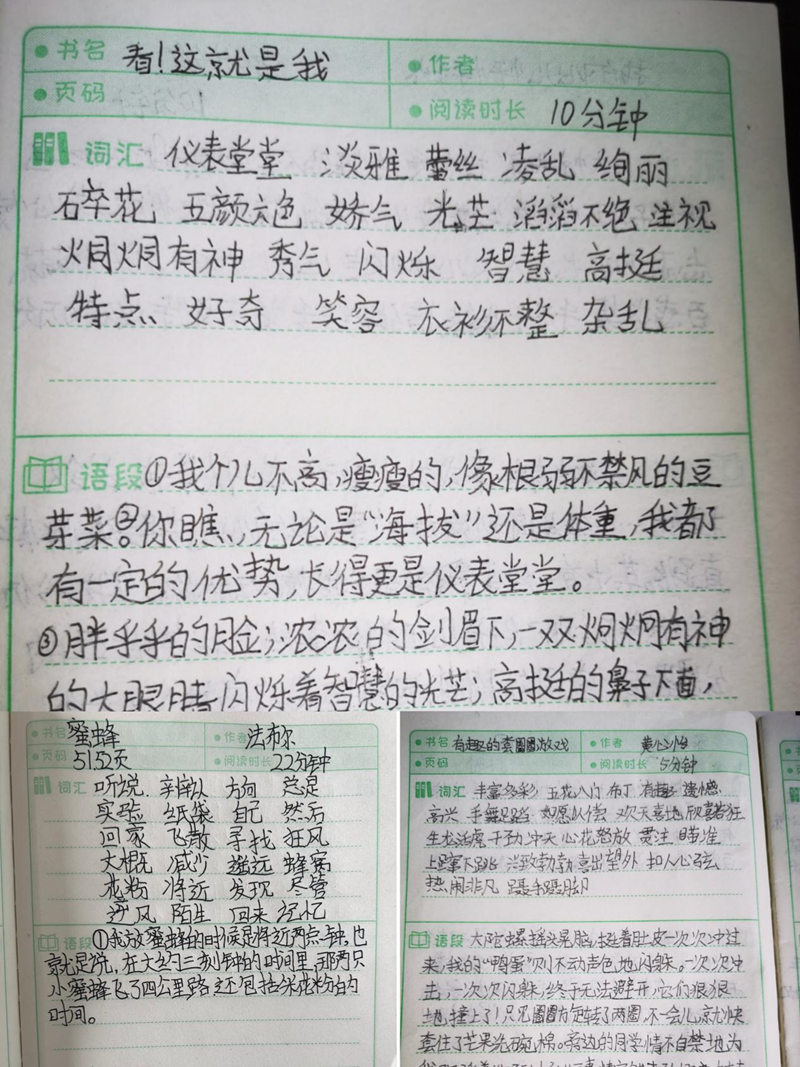 书名 看！这就是我 作者
页码 阅读时长 10分钟
词汇 仪表堂堂 淡雅 蕾丝 凌乱 绚丽
碎花 五颜六色 娇气 光芒 滔滔不绝 注视
炯炯有神 秀气 闪烁 智慧 高挺
特点 好奇 笑容 衣衫不整 杂乱
语段 ①我个儿不高，瘦瘦的，像根弱不禁风的豆
芽菜。②你瞧，无论是“海拔”还是体重，我都
有一定的优势，长得更是仪表堂堂。
③胖乎乎的脸；浓浓的剑眉下，一双炯炯有神
的大眼睛闪烁着智慧的光芒；高挺的鼻子下面，
书名 蜜蜂 作者 法布尔
页码 5152页 阅读时长 22分钟
词汇 听说 辨认 方向 总是
实验 纸袋 自己 然后
回家 飞散 寻找 狂风
大概 减少 遥远 蜂窝
花粉 将近 发现 尽管
逆风 陌生 回来 记忆
语段 ①我放蜜蜂的时候是将近两点钟，也
就是说，在大约三刻钟的时间里，那两只
小蜜蜂飞了四公里路，还包括采花粉的
时间。
书名 有趣的套圈圈游戏 作者 黄心怡
页码 阅读时长 5分钟
词汇 丰富多彩 五花八门 布丁 有趣 遗憾
高兴 手舞足蹈 如愿以偿 欢天喜地 欣喜若狂
生龙活虎 干劲冲天 心花怒放 贯注 瞄准
上蹿下跳 兴致勃勃 喜出望外 扣人心弦
热闹非凡 蹑手蹑脚
语段 大陀螺摇头晃脑，挺着肚皮一次次冲过
来，我的“鸭蛋”则不动声色地闪躲。一次次冲
击，一次次闪躲，终于无法避开，它们狠狠
地撞上了！只见圈圈旋转了两圈，不一会儿就快
套住了芒果洗碗棉。旁边的同学情不自禁地为